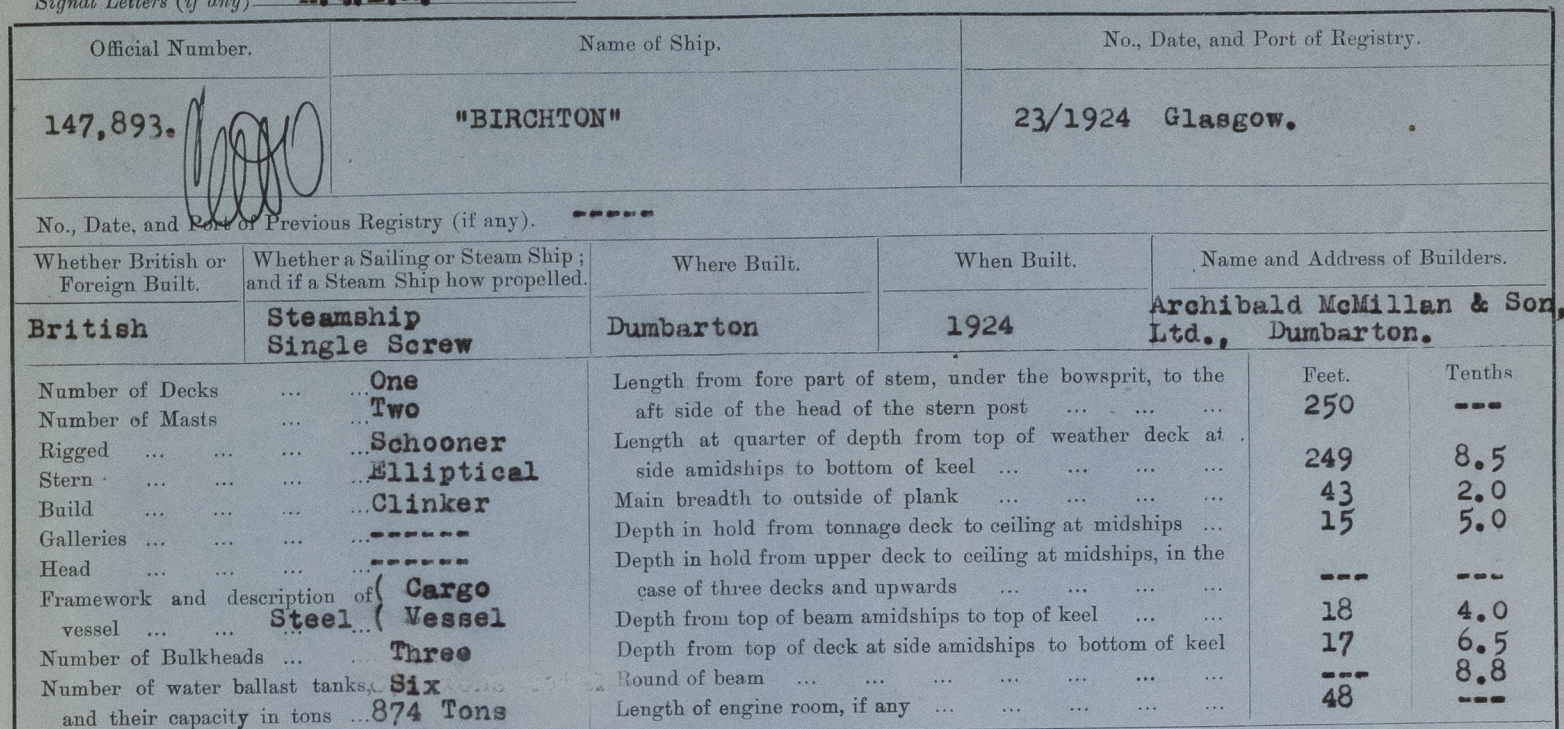 Signal Letters (if any)
Official Number. Name of Ship. No., Date, and Port of Registry.
147,893. "BIRCHTON" 23/1924 Glasgow.
No., Date, and Port of Previous Registry (if any). -----
Whether British or Foreign Built.
Whether a Sailing or Steam Ship ; and if a Steam Ship how propelled.
Where Built.
When Built.
Name and Address of Builders.
British
Steamship
Single Screw
Dumbarton
1924
Archibald McMillan & Son,
Ltd., Dumbarton.
Number of Decks ... ... One
Number of Masts ... ... Two
Rigged ... ... ... ... Schooner
Stern ... ... ... ... Elliptical
Build ... ... ... ... Clinker
Galleries ... ... ... ... ------
Head ... ... ... ... ------
Framework and description of ( Cargo
vessel ... ... Steel ... ( Vessel
Number of Bulkheads ... Three
Number of water ballast tanks, Six
and their capacity in tons ... 874 Tons
Feet. Tenths
Length from fore part of stem, under the bowsprit, to the
aft side of the head of the stern post ... ... ... 250 ---
Length at quarter of depth from top of weather deck at
side amidships to bottom of keel ... ... ... ... 249 8.5
Main breadth to outside of plank ... ... ... ... 43 2.0
Depth in hold from tonnage deck to ceiling at midships ... 15 5.0
Depth in hold from upper deck to ceiling at midships, in the
case of three decks and upwards ... ... ... --- ---
Depth from top of beam amidships to top of keel ... ... 18 4.0
Depth from top of deck at side amidships to bottom of keel 17 6.5
Round of beam ... ... ... ... ... ... ... --- 8.8
Length of engine room, if any ... ... ... ... ... 48 ---